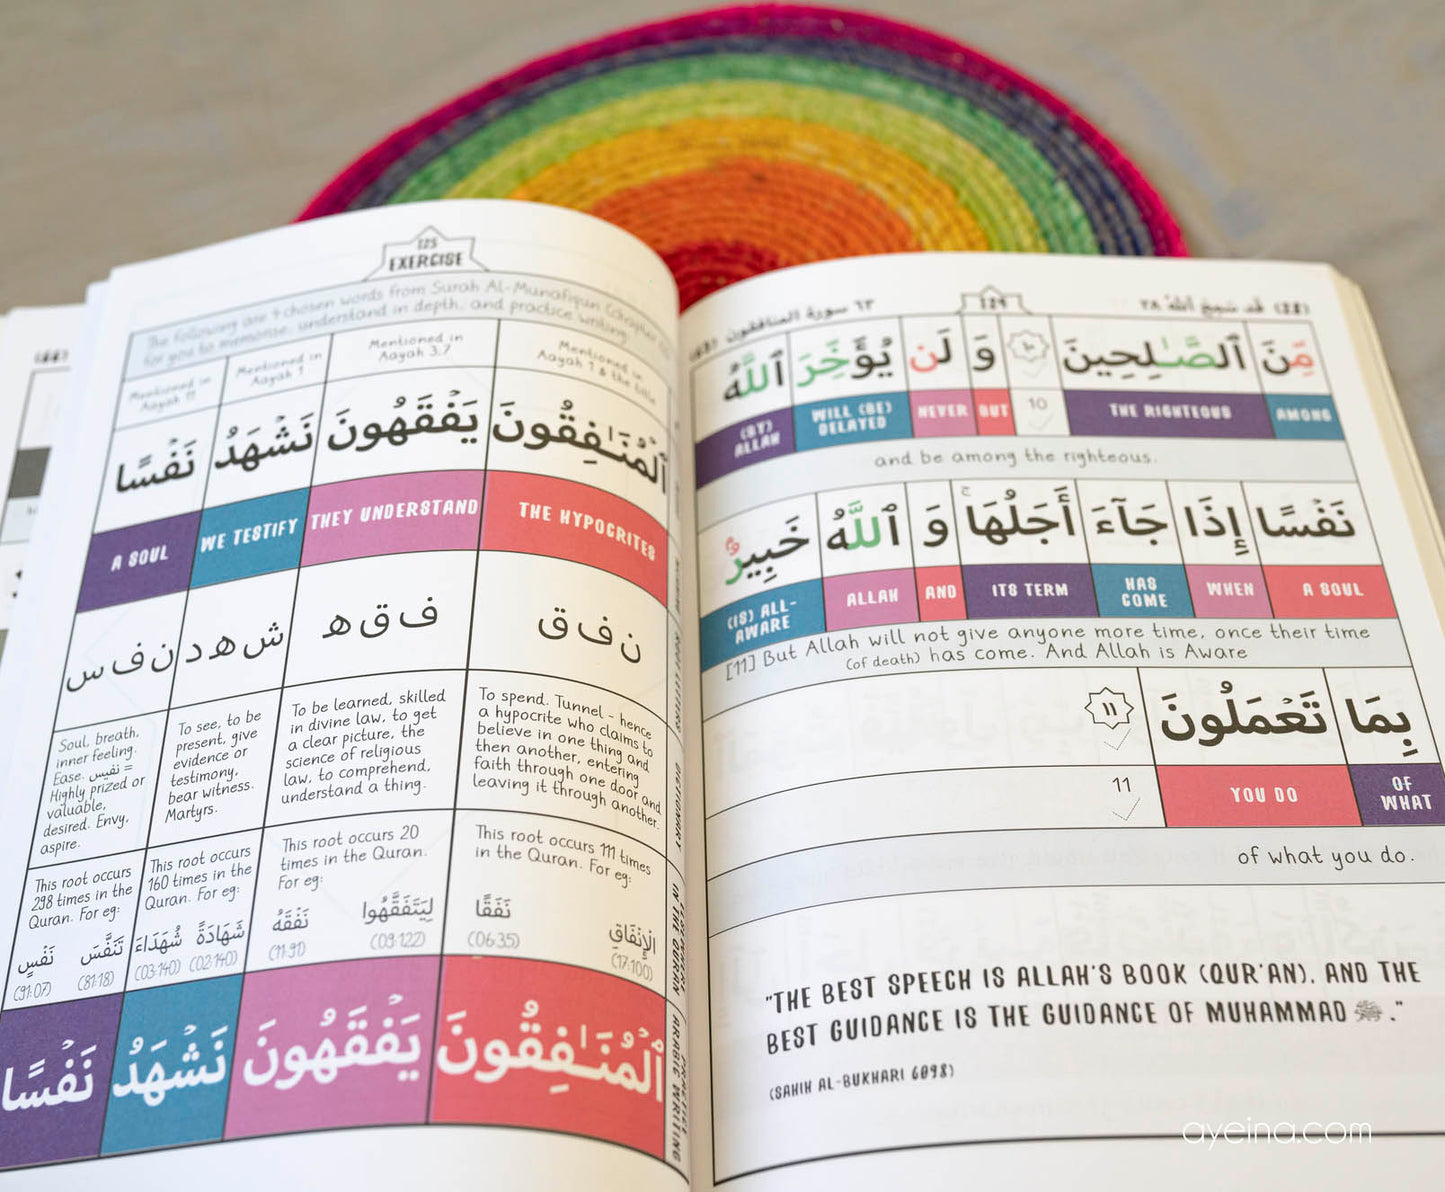 125
EXERCISE
The following are 4 chosen words from Surah Al-Munafiqun (chapter
for you to memorise, understand in depth, and practice writing.
Mentioned in
Aayah 1 & the title
Mentioned in
Aayah 3,7
Mentioned in
Aayah 1
Mentioned in
Aayah 11
ٱلْمُنَـٰفِقُونَ
يَفْقَهُونَ
نَشْهَدُ
نَفْسًا
THE HYPOCRITES
THEY UNDERSTAND
WE TESTIFY
A SOUL
ن ف ق
ف ق ه
ش ه د
ن ف س
ROOT LETTERS
To spend. Tunnel - hence
a hypocrite who claims to
believe in one thing and
then another, entering
faith through one door and
leaving it through another.
To be learned, skilled
in divine law, to get
a clear picture, the
science of religious
law, to comprehend,
understand a thing.
To see, to be
present, give
evidence or
testimony,
bear witness.
Martyrs.
Soul, breath,
inner feeling.
Ease. نفيس =
Highly prized or
valuable,
desired. Envy,
aspire.
DICTIONARY
This root occurs 111 times
in the Quran. For eg:
نَفَقًا
(06:35)
الْإِنْفَاقِ
(17:100)
This root occurs 20
times in the Quran.
For eg:
نَفْقَهُ
(11:91)
لِيَتَفَقَّهُوا
(09:122)
This root occurs
160 times in the
Quran. For eg:
شُهَدَاءَ
(03:140)
شَهَادَةً
(02:140)
This root occurs
298 times in the
Quran. For eg:
نَفْسٍ
(91:07)
تَنَفَّسَ
(81:18)
IN THE QURAN
ٱلْمُنَـٰفِقُونَ
يَفْقَهُونَ
نَشْهَدُ
نَفْسًا
PRACTICE
ARABIC WRITING
(28) قد سمع الله ٢٨
124
٦٣ سورة المنافقون (63)
مِّنَ ٱلصَّـٰلِحِينَ ١٠ وَ لَن يُؤَخِّرَ ٱللَّهُ
AMONG
THE RIGHTEOUS
10
BUT
NEVER
WILL (BE)
DELAYED
(BY)
ALLAH
and be among the righteous.
نَفْسًا إِذَا جَآءَ أَجَلُهَا ۚ وَ ٱللَّهُ خَبِيرٌۢ
A SOUL
WHEN
HAS
COME
ITS TERM
AND
ALLAH
(IS) ALL-
AWARE
[11] But Allah will not give anyone more time, once their time
(of death) has come. And Allah is Aware
بِمَا تَعْمَلُونَ ١١
OF
WHAT
YOU DO
11
of what you do.
"THE BEST SPEECH IS ALLAH'S BOOK (QUR'AN), AND THE
BEST GUIDANCE IS THE GUIDANCE OF MUHAMMAD ﷺ."
(SAHIH AL-BUKHARI 6098)
ayeina.com